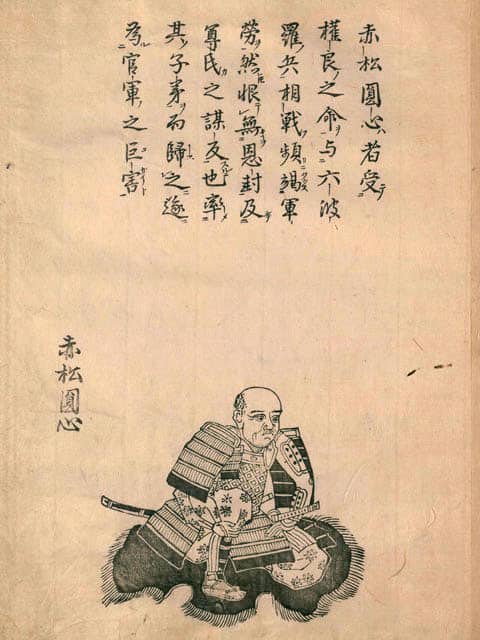 赤松圓心者受
權良之命与六波
羅兵相戦頻竭軍
勞然恨無恩封及
尊氏之謀反也率
其子弟而歸之遂
為官軍之巨害
赤松圓心